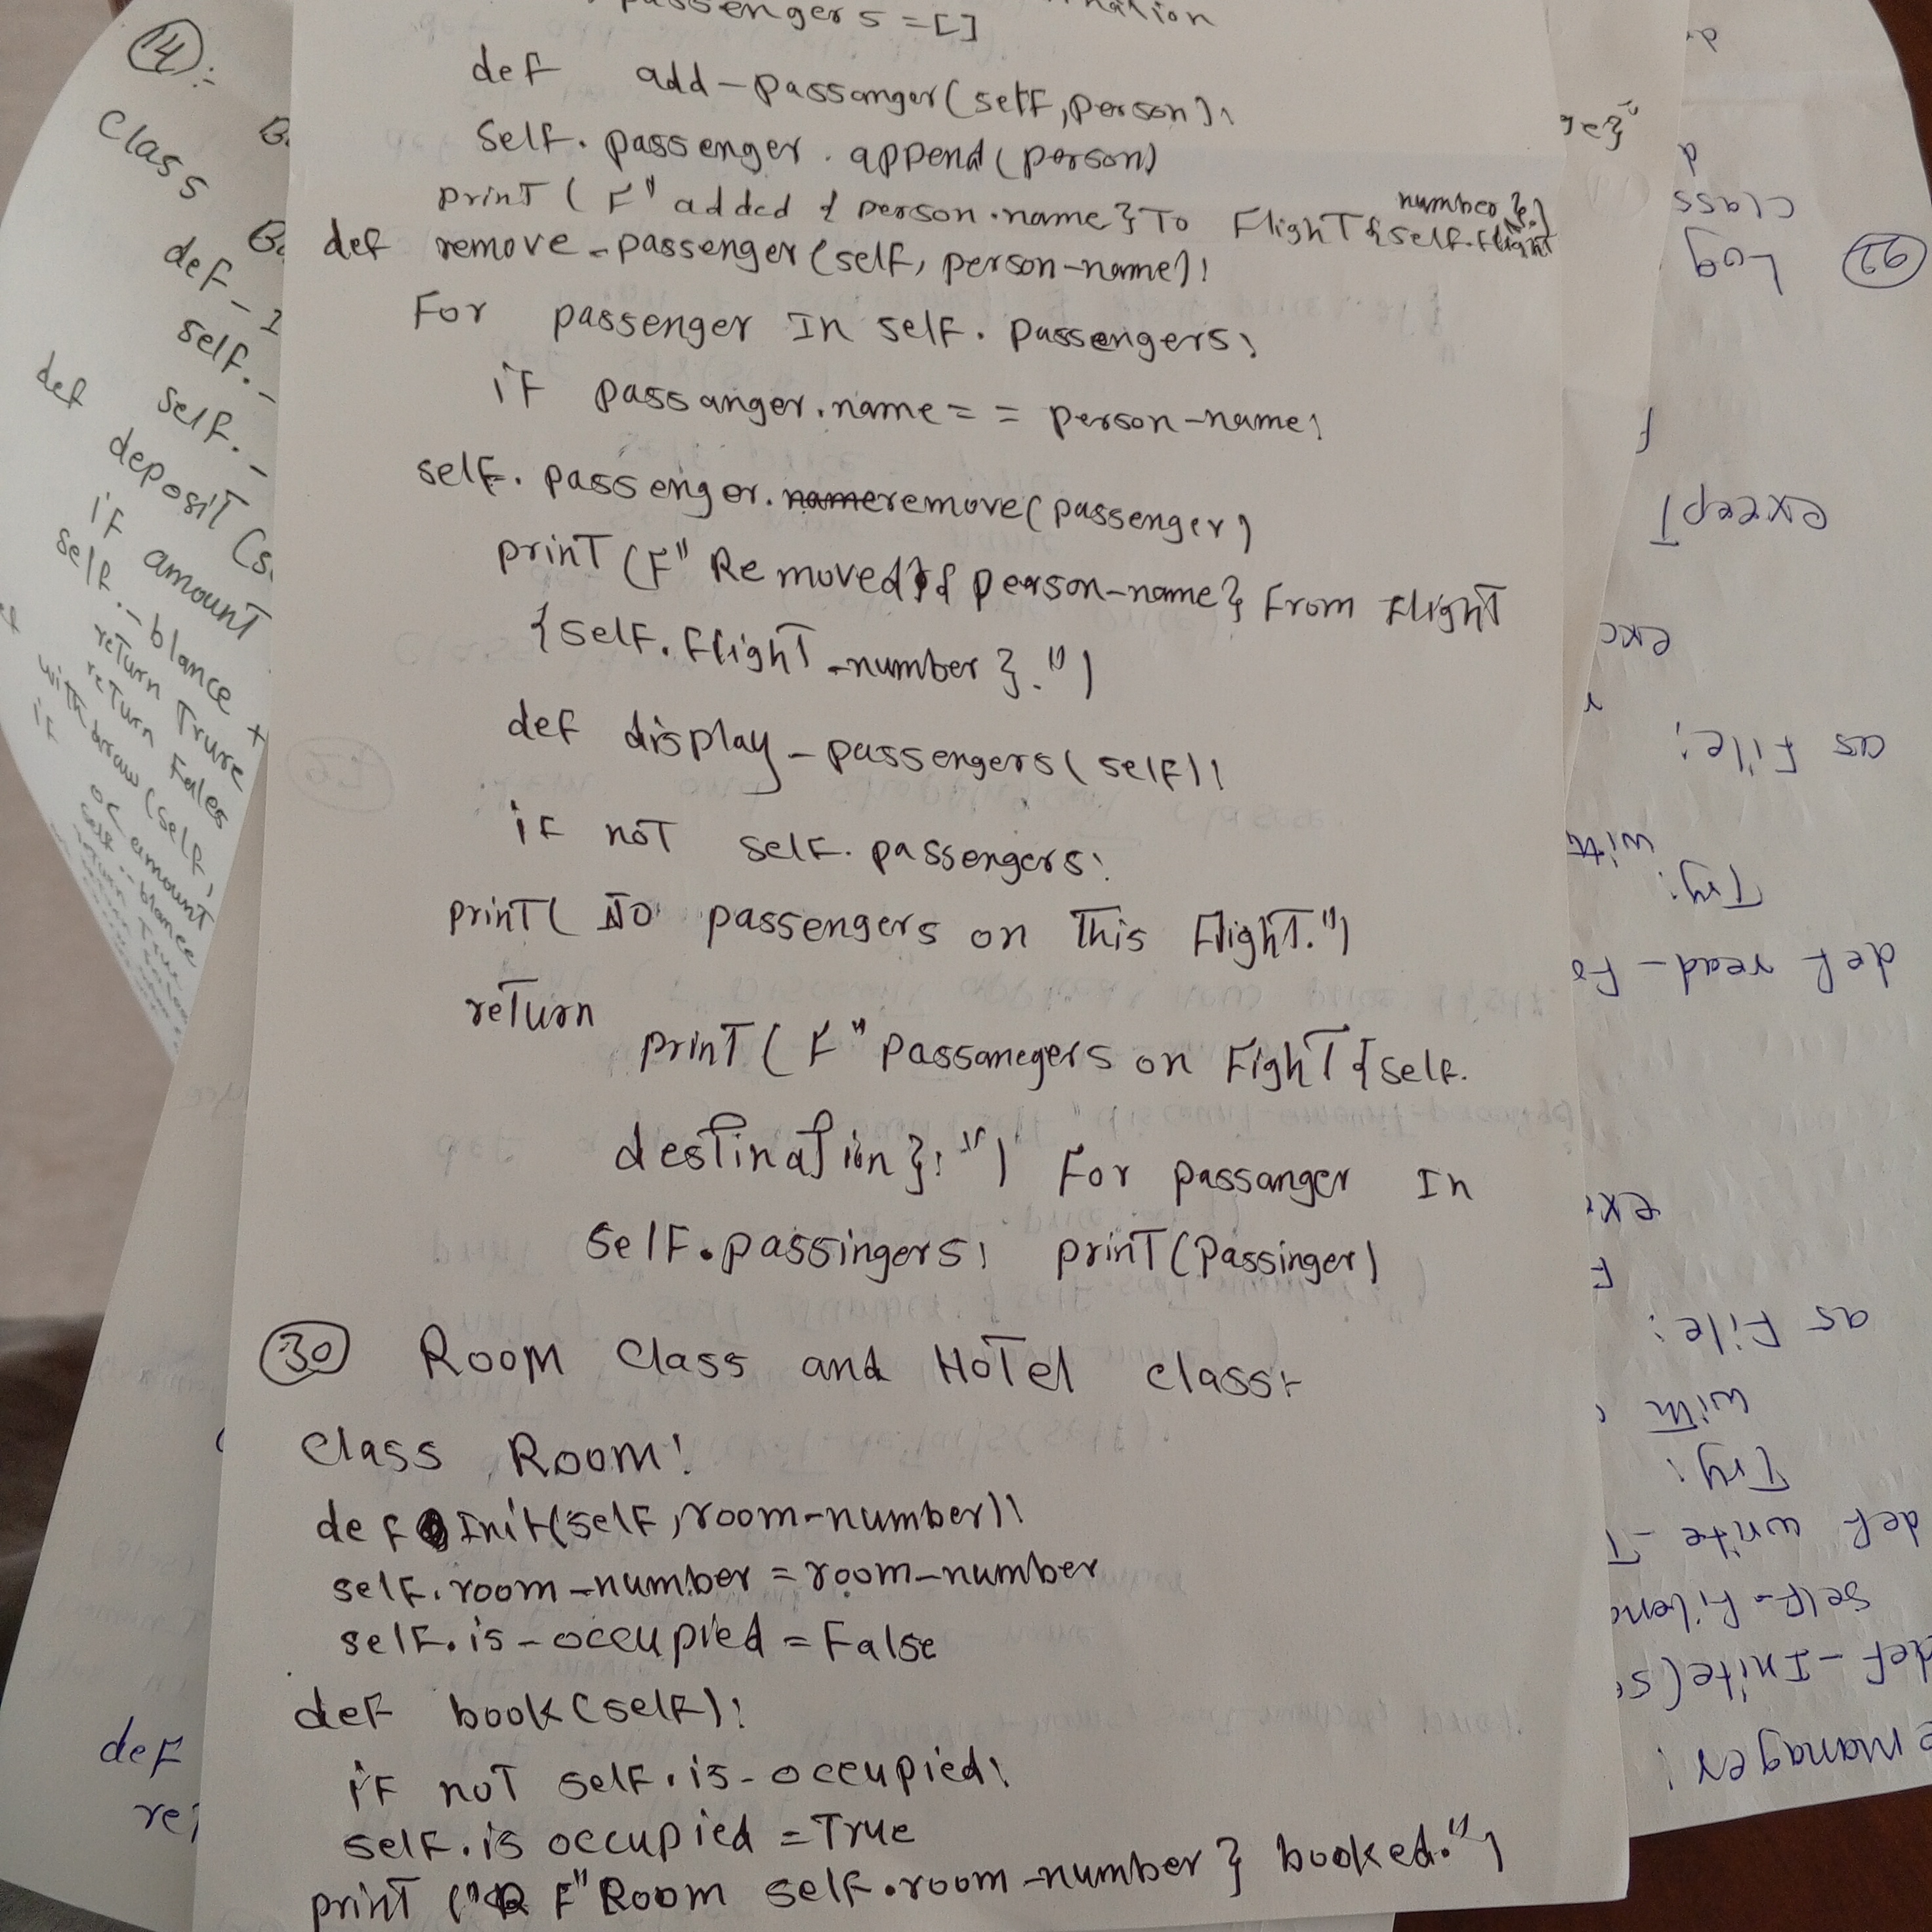 passengers=[]
def add-passanger(self,person):
self.passenger.append(person)
print(F"added {person.name}To Flight{self.Flight
number}.")
def remove-passenger(self, person-name):
For passenger In self.passengers:
if passanger.name== person-name:
self.passenger.remove(passenger)
print(F"Removed {person-name} From Flight
{self.Flight-number}.")
def display-passengers(self):
if not self.passengers:
print( No passengers on This Flight.")
return
print(F"Passanegers on Fight{self.
destination}:") For passanger In
self.passingers: print(Passinger)
30 Room Class and Hotel class:-
Class Room:
def Init(self,room-number):
self.room-number=room-number
self.is-occupied=False
def book(self):
if not self.is-occupied:
self.is occupied=True
print (" F"Room self.room-number} booked.")
14:-
Class
def-I
self.-
self.-
def
deposit(s
if amount
self.-blance +
return Trure
return Fales
withdraw(self,
if
or amount
self.-blance
def
26 Log
class
except
as File:
Try:
with
def read-Fo
as File:
with
Try:
def write-T
self-filena
def-Inite(se
emanager: